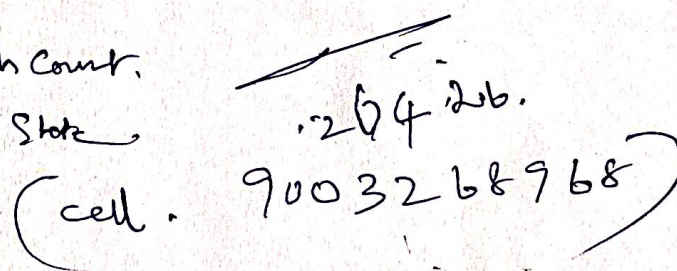 h Court.
State
.204.26.
(cell. 9003268968)